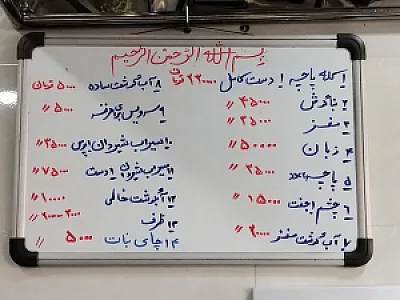 بسم الله الرحمن الرحیم
۱ کله پاچه ۱ دست کامل ۲۲۰۰۰۰ تومان
۲ بناگوش ۴۵۰۰۰ //
۳ مغز ۲۵۰۰۰ //
۴ زبان ۵۰۰۰۰ //
۵ پاچه ۱ عدد ۳۵۰۰۰ //
۶ چشم ۱ جفت ۱۵۰۰۰ //
۷ آب گوشت مغز ۲۰۰۰۰ //
۸ آب گوشت ساده ۵۰۰۰ تومان
۹ سرویس برای هر نفر ۵۰۰۰ //
۱۰ سیراب شیردان پرسی ۳۵۰۰۰ //
۱۱ سیراب شیردان ۱ دست ۷۵۰۰۰ //
۱۲ آبگوشت خالی ۱۰۰۰۰ //
۱۳ ظرف ۲۰۰۰ - ۳۰۰۰ //
۱۴ چای نبات ۵۰۰۰ //